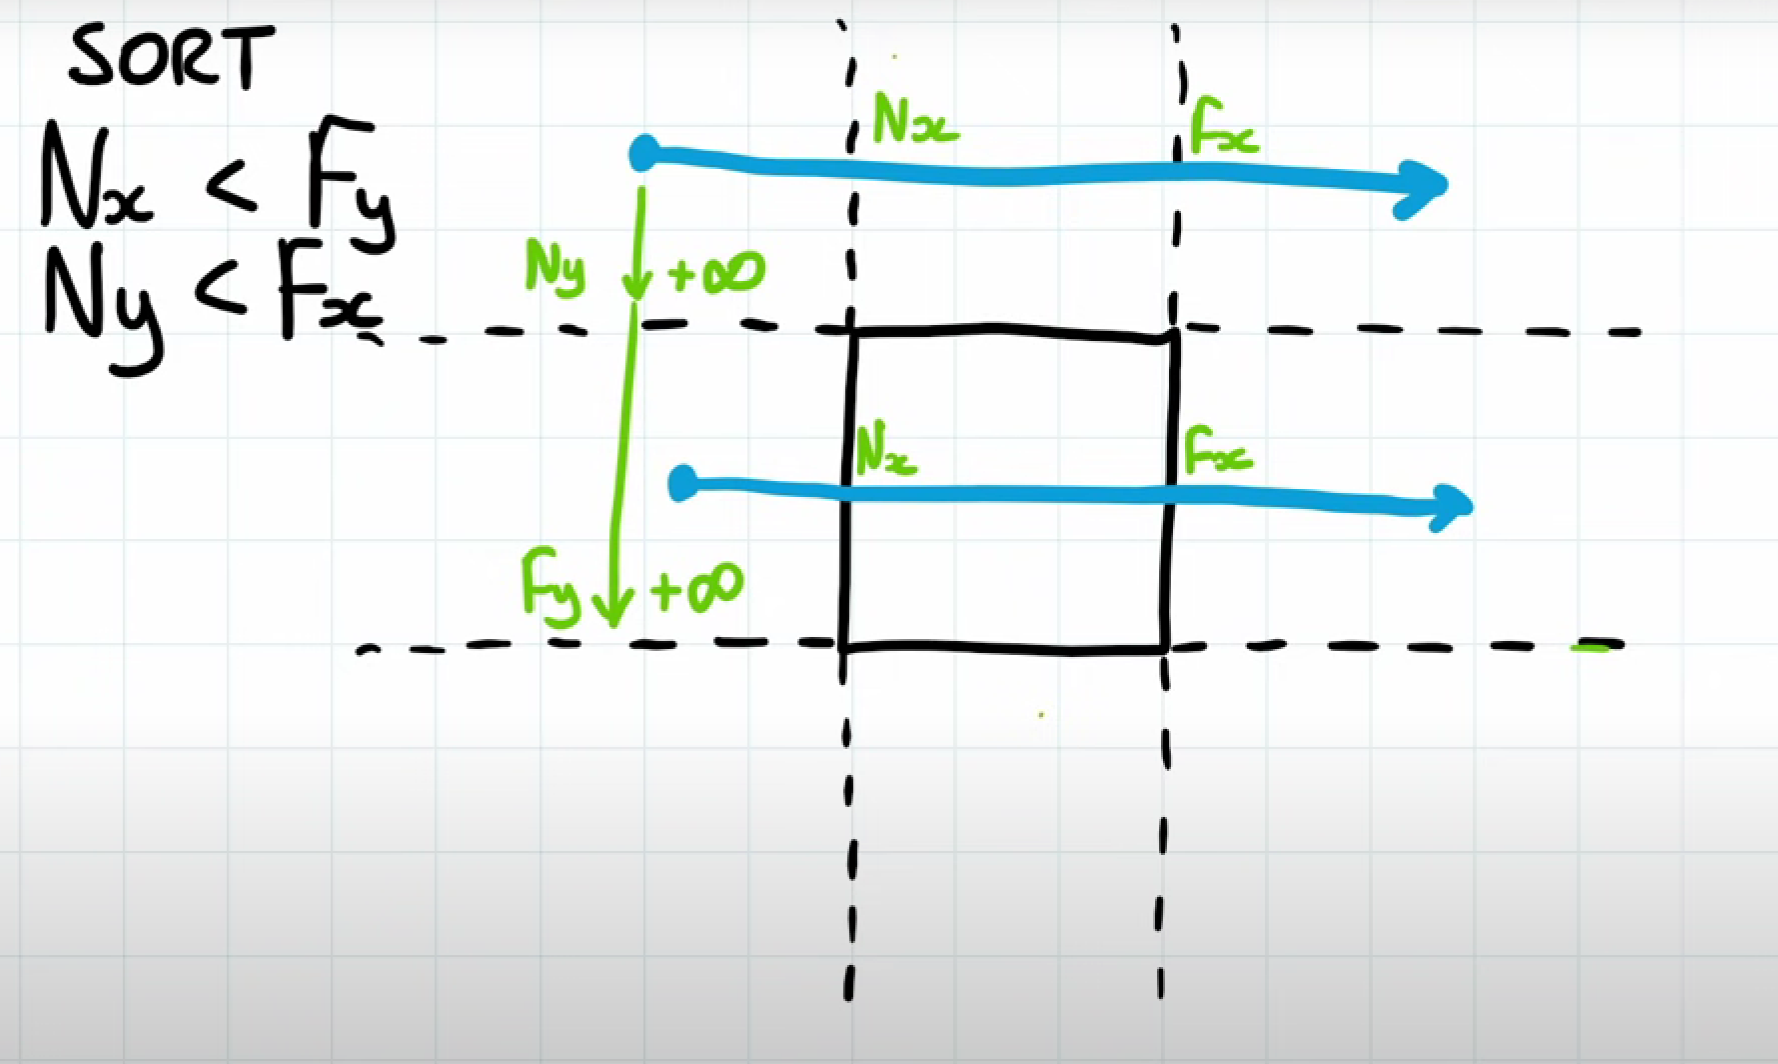 SORT
Nx < Fy
Ny < Fx
Nx
Fx
Ny +∞
Nx
Fx
Fy +∞